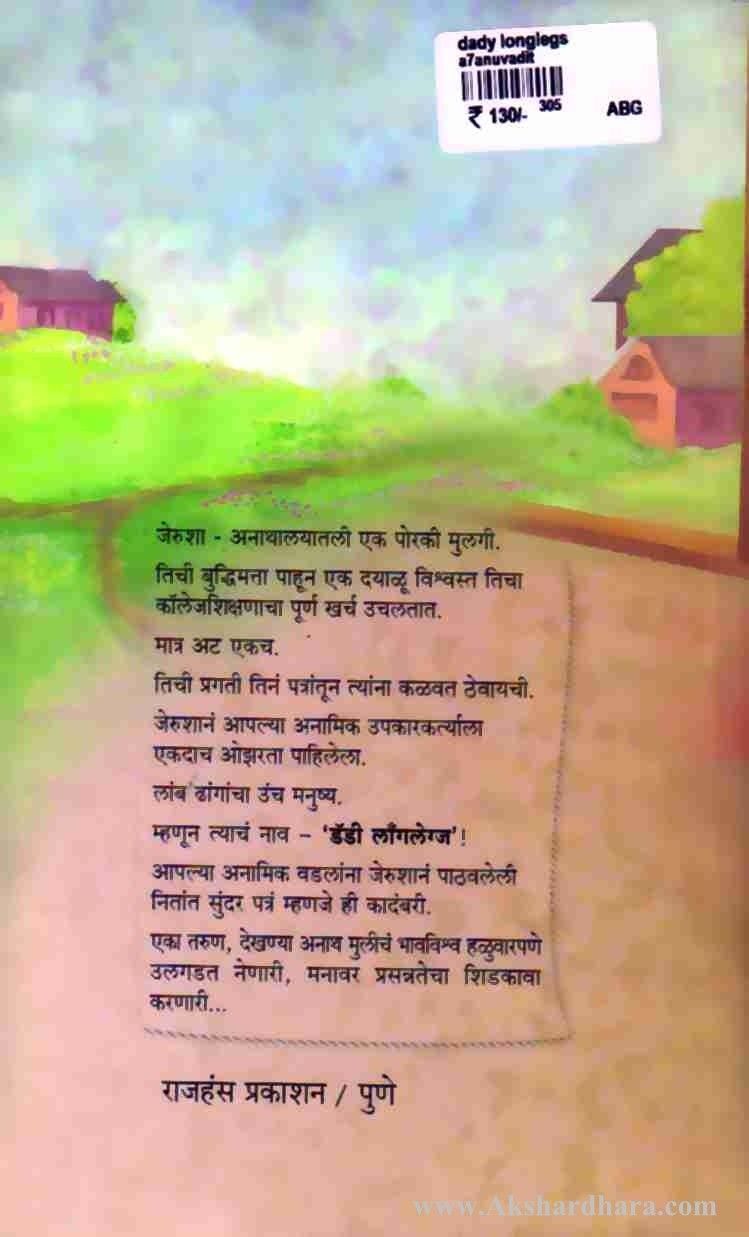 dady longlegs
a7anuvadit
₹ 130/- 305 ABG
जेरुशा - अनाथालयातली एक पोरकी मुलगी.
तिची बुद्धिमत्ता पाहून एक दयाळू विश्वस्त तिचा
कॉलेजशिक्षणाचा पूर्ण खर्च उचलतात.
मात्र अट एकच.
तिची प्रगती तिनं पत्रांतून त्यांना कळवत ठेवायची.
जेरुशानं आपल्या अनामिक उपकारकर्त्याला
एकदाच ओझरता पाहिलेला.
लांब ढांगांचा उंच मनुष्य.
म्हणून त्याचं नाव – ‘डॅडी लाँगलेग्ज’!
आपल्या अनामिक वडलांना जेरुशानं पाठवलेली
नितांत सुंदर पत्रं म्हणजे ही कादंबरी.
एका तरुण, देखण्या अनाथ मुलीचं भावविश्व हळुवारपणे
उलगडत नेणारी, मनावर प्रसन्नतेचा शिडकावा
करणारी...
राजहंस प्रकाशन / पुणे
www.Akshardhara.com